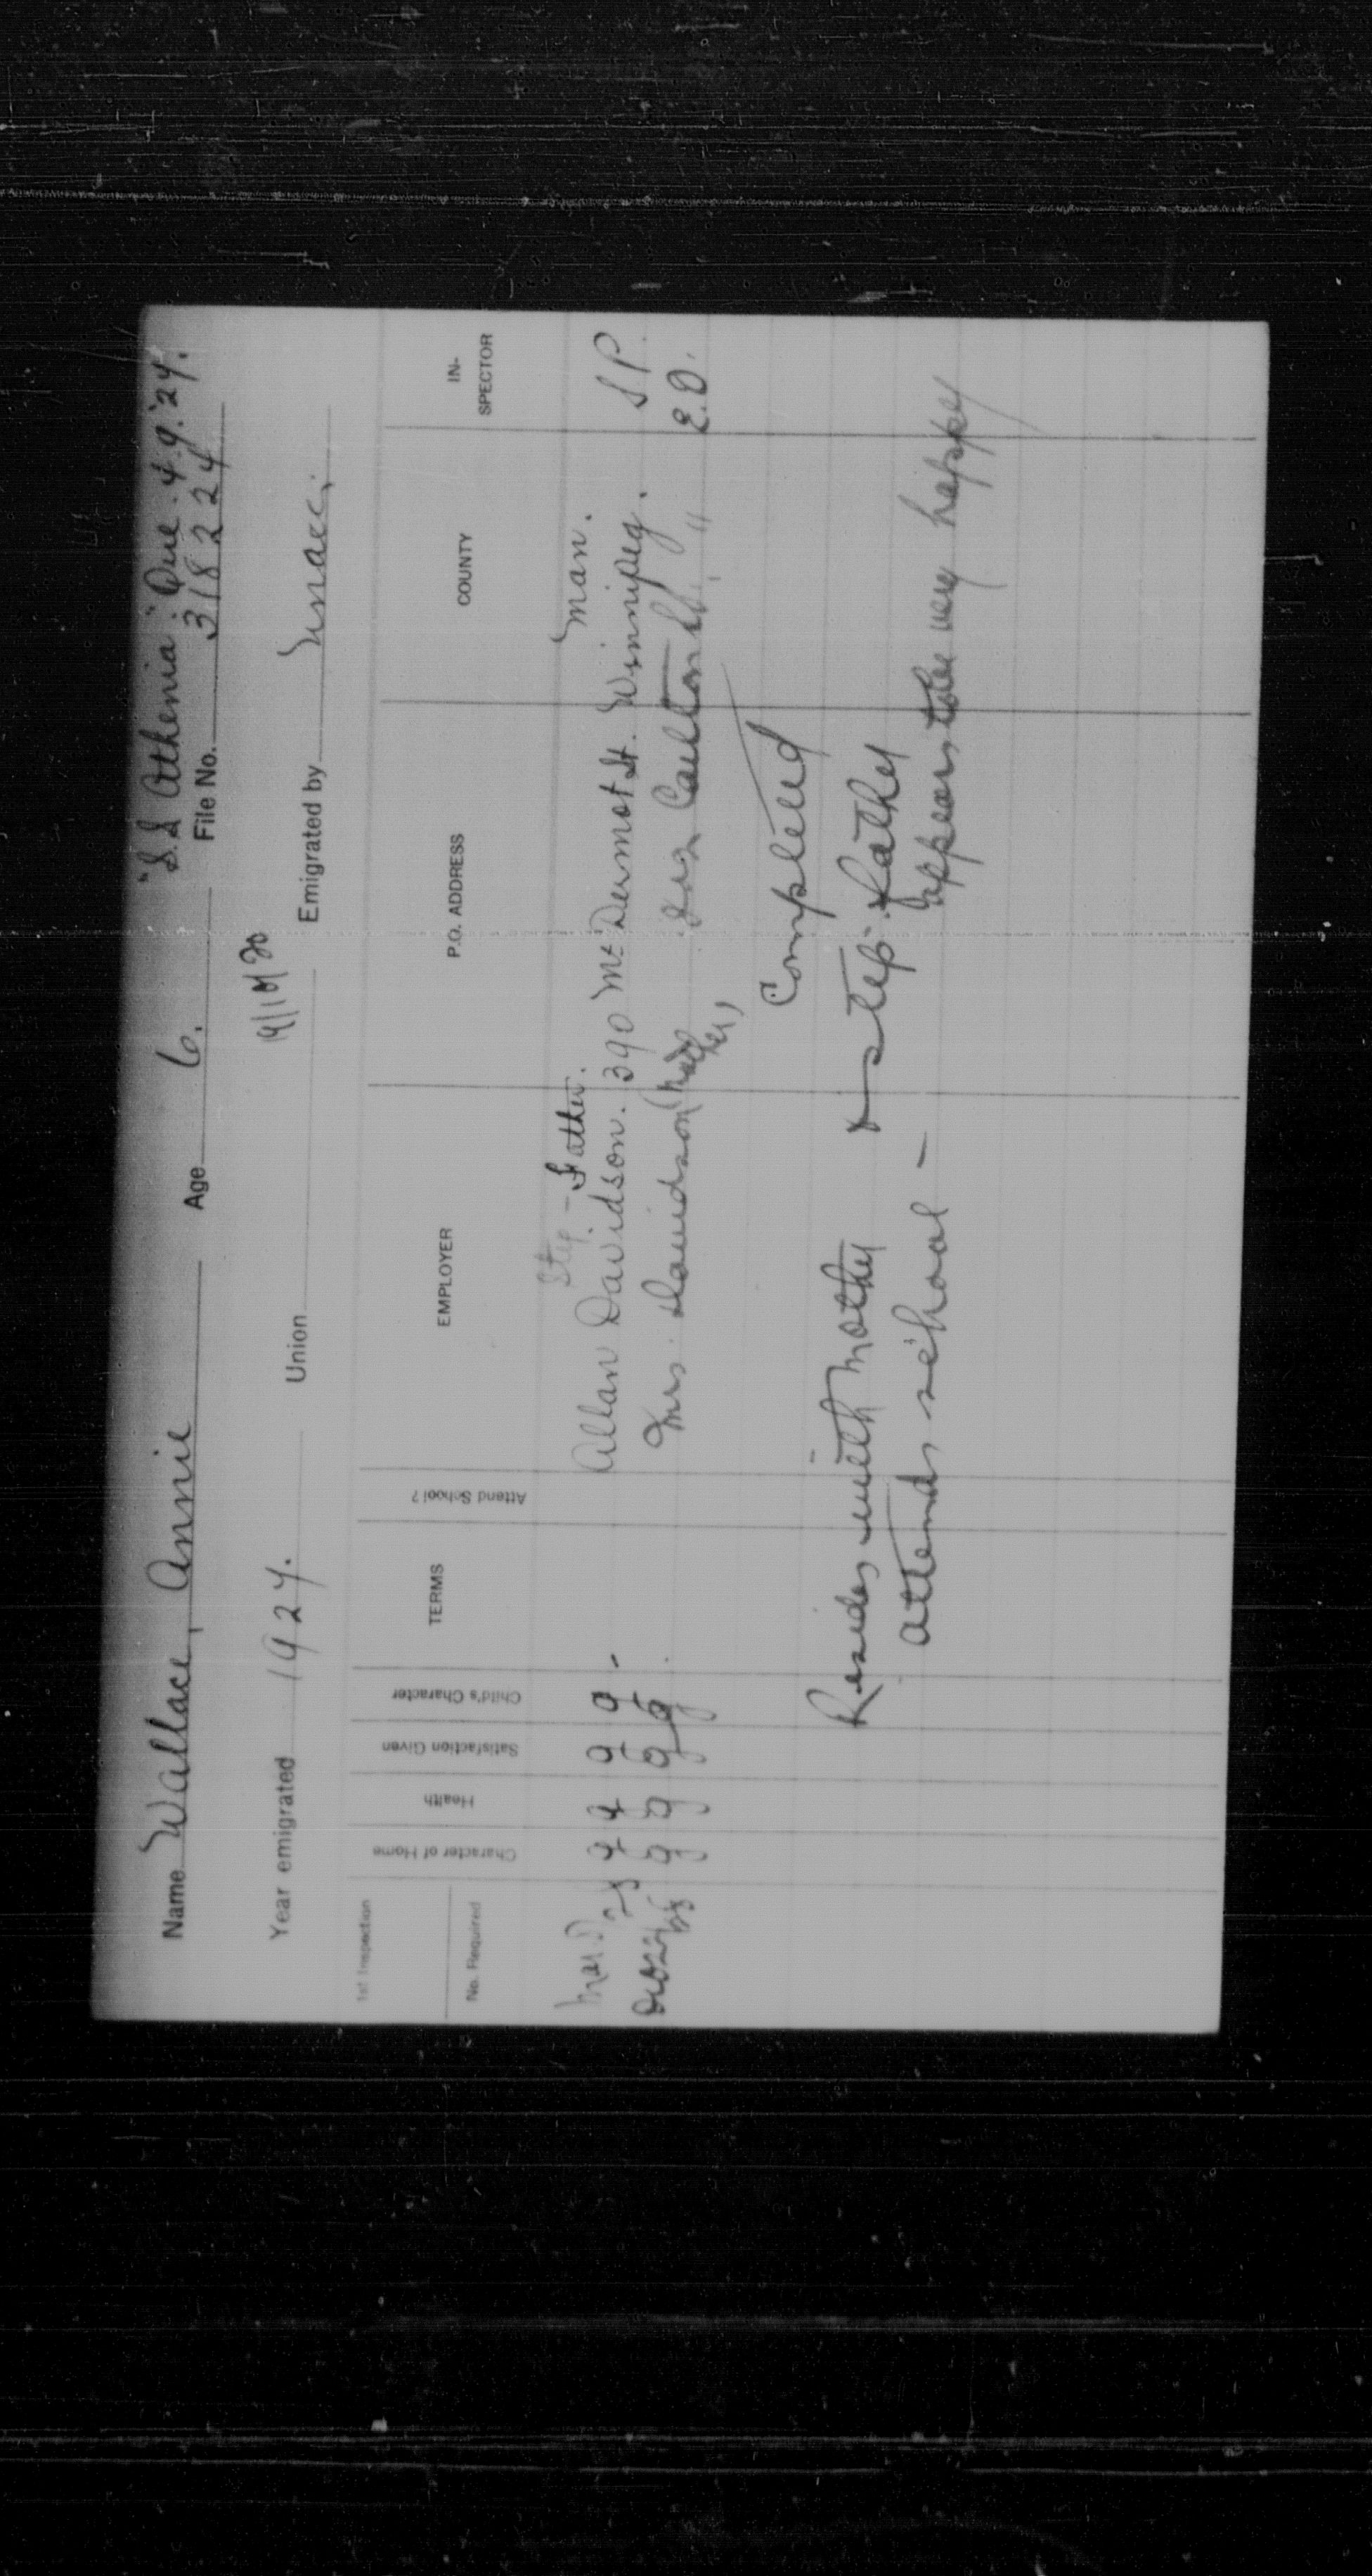 Name Wallace, Annie Age 6. "S.S Athenia" Que. 4.9.'27.
File No. 318224
Year emigrated 1927. Union Emigrated by Unacc.
1st Inspection
No. Required
Character of Home
Health
Satisfaction Given
Child's Character
TERMS
Attend School?
EMPLOYER
P.O. ADDRESS
COUNTY
IN-SPECTOR
Step-Father. Man.
Allan Davidson. 390 McDermot St. Winnipeg. S P.
g g g g Mrs. Davidson (Mother) Carlton St. " E.D.
Completed
Resides with Mother & step-father
attends school - appears to be very happy